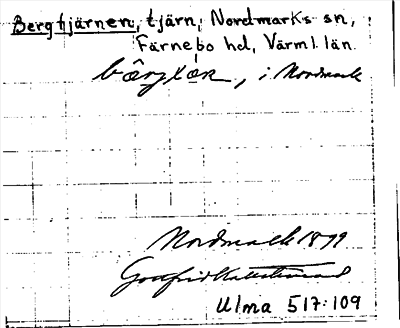 Bergtjärnen, tjärn, Nordmarks sn,
Färnebo hd, Värml. län.
i Nordmark
Nordmark 1899
Gottfrid Kallstenius
Ulma 517:109